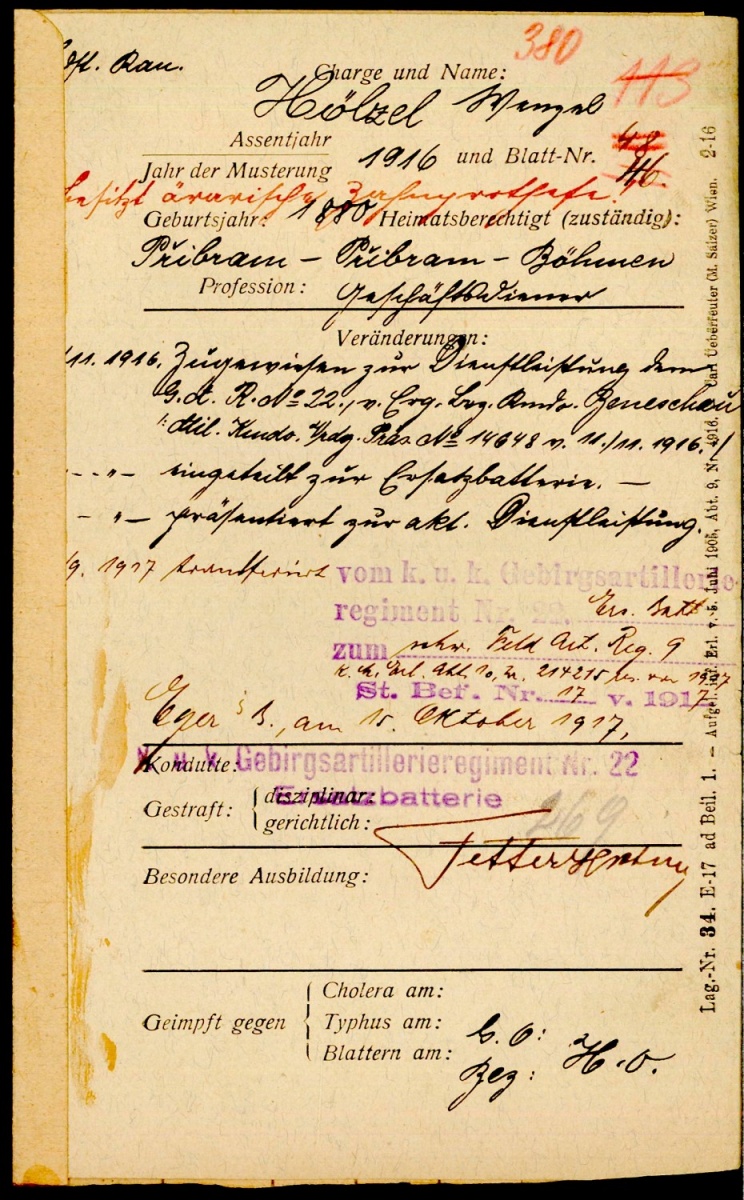 380
Kan. Charge und Name: 113
Hölzel Wenzel
Assentjahr
Jahr der Musterung 1916 und Blatt-Nr. 48 46.
besitzt ärarische Zahnprothese.
Geburtsjahr: 1880 Heimatsberechtigt (zuständig):
Přibram – Přibram – Böhmen
Profession: Geschäftsdiener
Veränderungen:
/11. 1916. Zugewiesen zur Dienstleistung dem
G. A. R. No 22., v. Erg. Bez. Kmdo. Beneschau
Mil. Kmdo. Präs. No 14648 v. 11./11. 1916. /
– „ – eingeteilt zur Ersatzbatterie. –
– „ – präsentiert zur akt. Dienstleistung.
/9. 1917 transferiert vom k. u. k. Gebirgsartillerie-
regiment Nr. 22. Ers. Batt
zum schw. Feld Art. Reg. 9
Erl. Abt. 10, 214215 von 1917
St. Bef. Nr. 17 v. 1917
Eger i. B., am 15. Oktober 1917,
Konduite: K. u. k. Gebirgsartillerieregiment Nr. 22
Ersatzbatterie
Gestraft: { disziplinar:
gerichtlich:
269
Besondere Ausbildung:
Geimpft gegen { Cholera am:
Typhus am: G. O:
Blattern am: Bez: H. O.
Lag.-Nr. 34. E-17 ad Beil. 1. — Aufgel. mit Erl. v. 5. Juni 1905, Abt. 9, Nr. 1916. Carl Ueberreuter (M. Salzer) Wien. 2-16